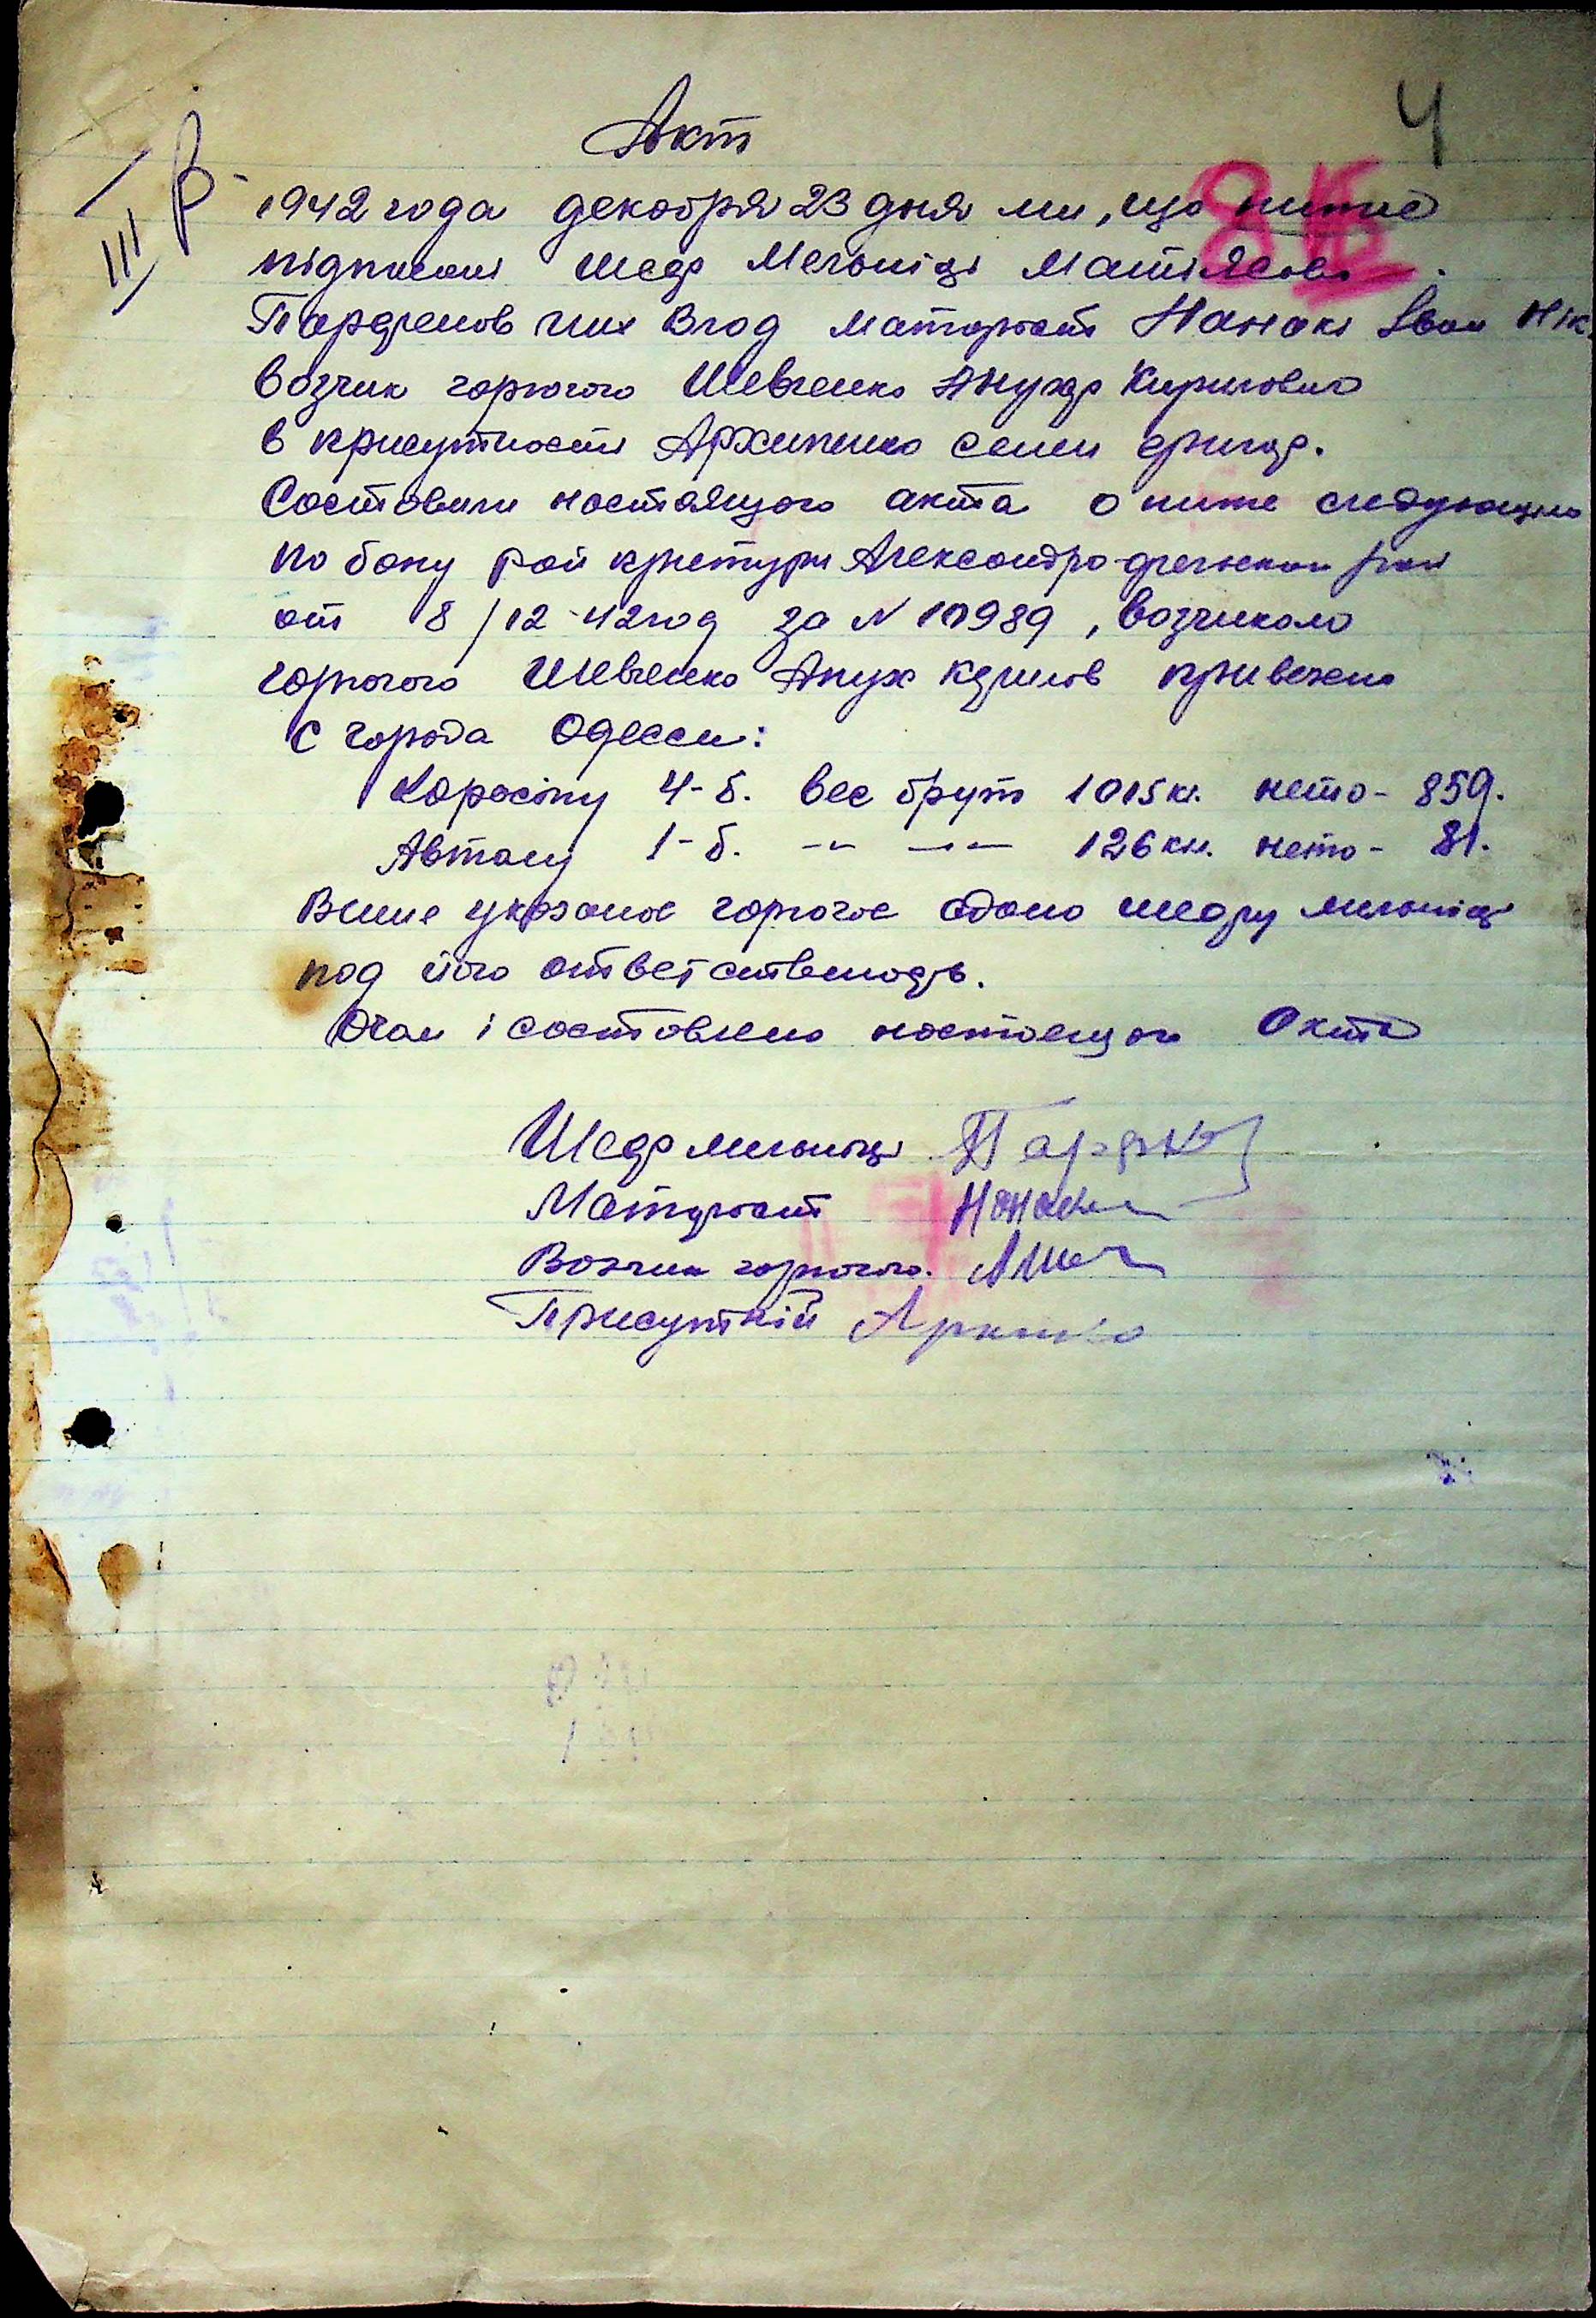 4
Акт
8
1942 года декабря 23 дня ми, що нижче
підписані шеф Мельніці
Парфенов Влод маторист Нанакі Іван Нік
возчик горючого Шевченко Кирилович
в присутности Архипенко семен григор.
Составили настоящого акта о ниже следующим
По бону рай претури Александро- рай
от 8/12-42год за № 10989, возчиком
горючого Шевченко привезено
с города Одесси:
Каросіну 4-б. вес брут 1015 кл. нето- 859.
Автолу 1-б. -〃- -〃- 126 кл. нето- 81.
Више указаное горючое сдано шефу мельніці
под його ответственодь.
Очом і составлено настоещого Окта
Шеф мельніці
Маторист Нанакі
Возчик горючого.
Присутній